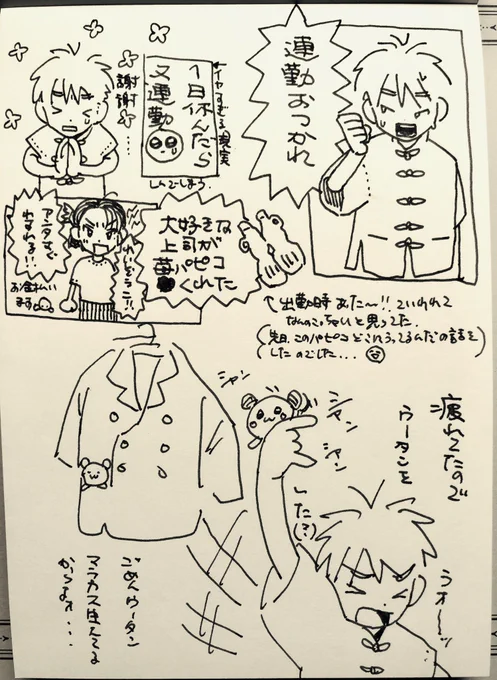 連勤おつかれ
←イヤすぎる現実
1日休んだら
又連勤
しんでしまう.
謝謝…
大好きな
上司が
苺パピコ
くれた
れいぞうこに!!
アンタすぐ
わすれる!!
お金払い
ます
↑出勤時 あた〜!! ていわれて
なんのこっちゃいと思ってた.
(先日、このパピコどこにうってるんだの話を
したのでした...
疲れてたので
ウータンを
シャン
シャン
シャン
した(?)
うオ〜ッ
ごめんウータン
マラカス生えてる
からよォ...